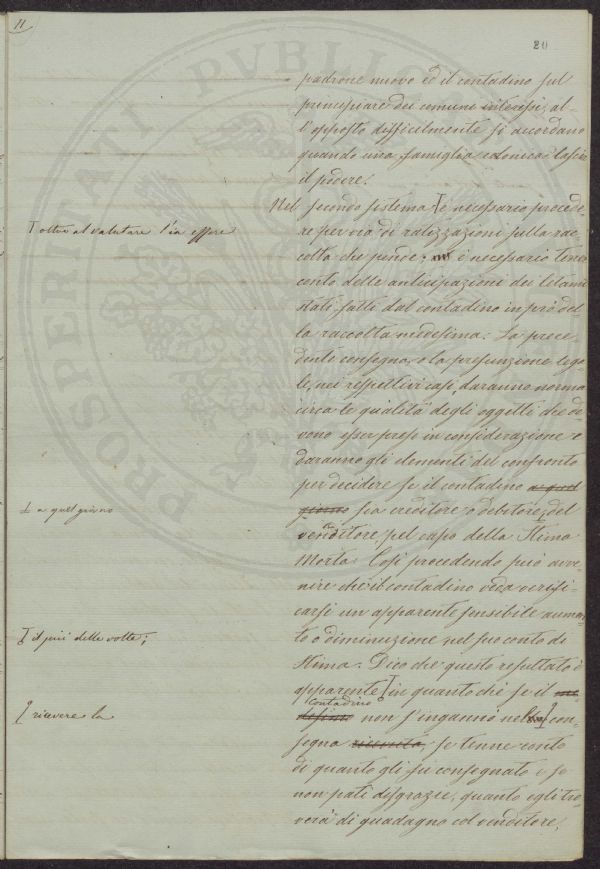 11
20
padrone nuovo ed il contadino sul
principiare dei comuni interessi; al-
l'opposto difficilmente si accordano
quando una famiglia colonica lascia
il podere.
Nel secondo sistema ⌈ è necessario procede-
⌈ oltre al valutare l'in essere
re per via di ralizzazioni sulla rac-
colta che pende; è necessario tener
conto delle anticipazioni dei letami
stati fatti dal contadino in prò del-
la raccolta medesima. La prece-
dente consegna, o la presunzione lega-
le, nei respettivi casi, daranno norma
circa le qualità degli oggetti che de-
vono esser presi in considerazione e
daranno gli elementi del confronto
per decidere se il contadino a quel
⌈ a quel giorno
giorno sia creditore o debitore ⌈ del
venditore pel capo della Stima
Morta. Così procedendo può avve-
nire che il contadino veda verifi-
carsi un apparente sensibile aumen-
⌈ il più delle volte;
to o diminuzione nel suo conto di
Stima. Dico che questo resultato è
apparente ⌈ in quanto che se il me-
contadino
⌈ ricevere la
desimo non s'ingannò nel con-
segna ricevuta, se tenne conto
di quanto gli fu consegnato e se
non patì disgrazie, quanto egli tro-
verà di guadagno col venditore,
PROSPERITATI PVBLICAE